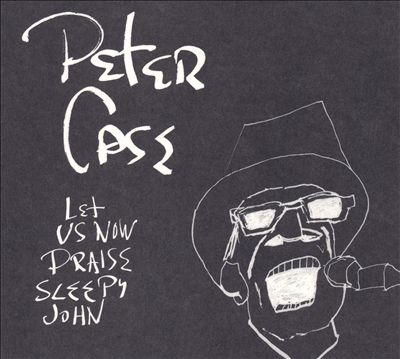 PETER
CASE
LET
US NOW
PRAISE
SLEEPY
JOHN